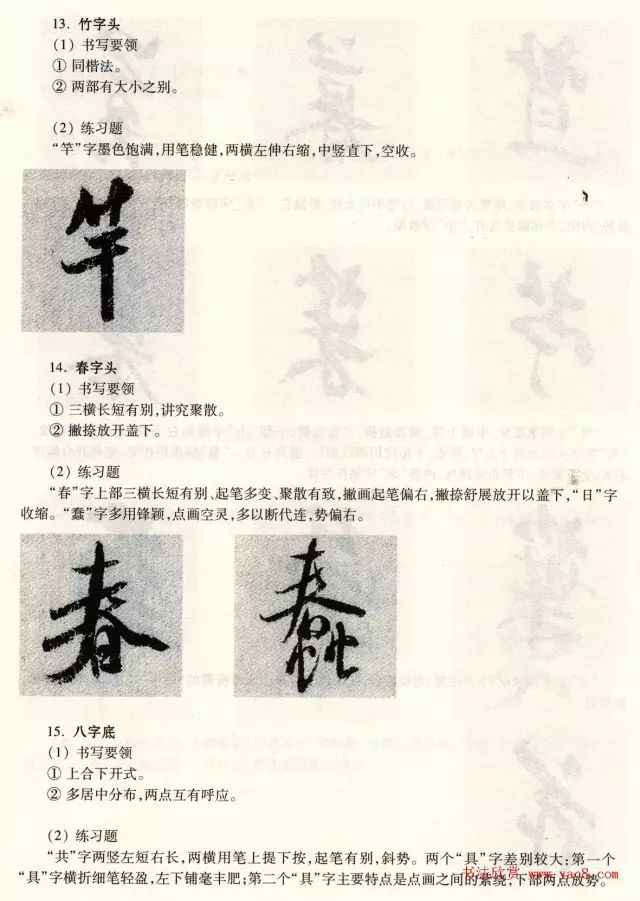 13. 竹字头
(1) 书写要领
① 同楷法。
② 两部有大小之别。
(2) 练习题
“竿”字墨色饱满,用笔稳健,两横左伸右缩,中竖直下,空收。
竿
14. 春字头
(1) 书写要领
① 三横长短有别,讲究聚散。
② 撇捺放开盖下。
(2) 练习题
“春”字上部三横长短有别、起笔多变、聚散有致,撇画起笔偏右,撇捺舒展放开以盖下,“日”字
收缩。“蠢”字多用锋颖,点画空灵,多以断代连,势偏右。
春 蠢
15. 八字底
(1) 书写要领
① 上合下开式。
② 多居中分布,两点互有呼应。
(2) 练习题
“共”字两竖左短右长,两横用笔上提下按,起笔有别,斜势。两个“具”字差别较大;第一个
“具”字横折细笔轻盈,左下铺毫丰肥;第二个“具”字主要特点是点画之间的萦绕,下部两点放势。
书法欣赏 www.yac8.com